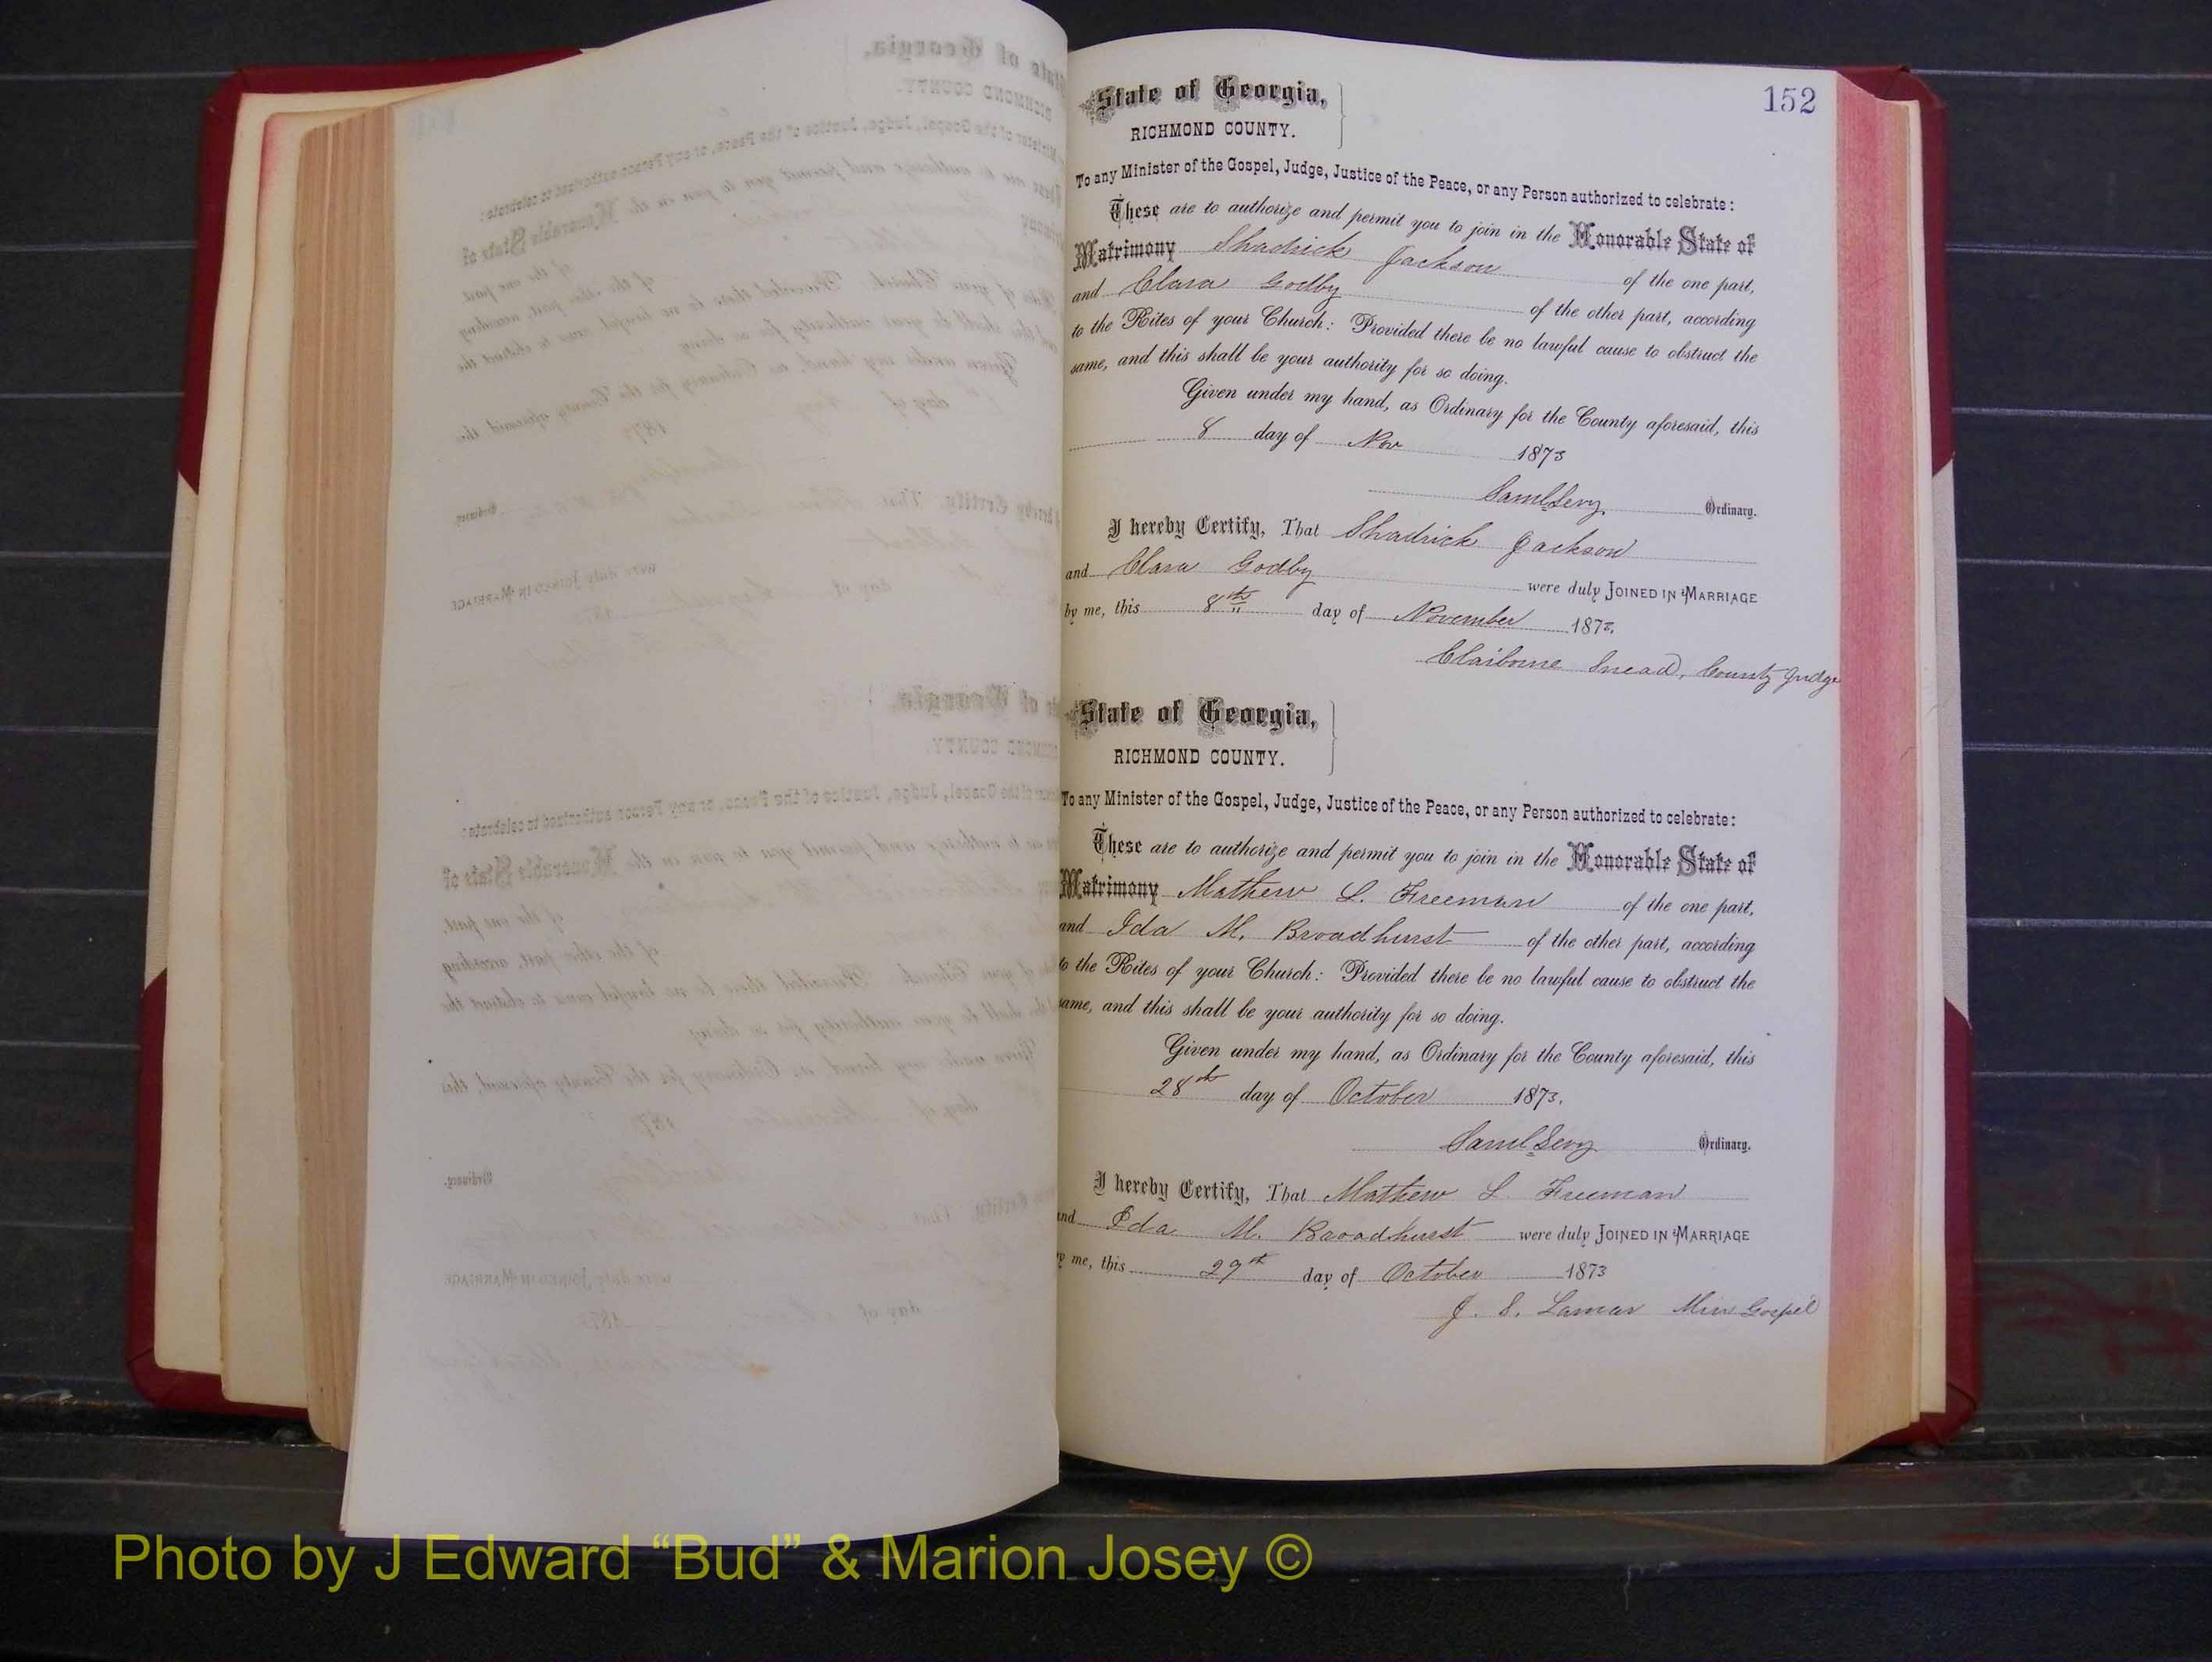 152
State of Georgia,
RICHMOND COUNTY.
To any Minister of the Gospel, Judge, Justice of the Peace, or any Person authorized to celebrate:
These are to authorize and permit you to join in the Honorable State of
Matrimony Shadrick Jackson of the one part,
and Clara Godby of the other part, according
to the Rites of your Church: Provided there be no lawful cause to obstruct the
same, and this shall be your authority for so doing.
Given under my hand, as Ordinary for the County aforesaid, this
8 day of Nov 1873
Saml Levy Ordinary.
I hereby Certify, That Shadrick Jackson
and Clara Godby were duly JOINED IN MARRIAGE
by me, this 8th day of November 1873.
Claiborne Snead, County Judge
State of Georgia,
RICHMOND COUNTY.
To any Minister of the Gospel, Judge, Justice of the Peace, or any Person authorized to celebrate:
These are to authorize and permit you to join in the Honorable State of
Matrimony Mathew L. Freeman of the one part,
and Ida M. Broadhurst of the other part, according
to the Rites of your Church: Provided there be no lawful cause to obstruct the
same, and this shall be your authority for so doing.
Given under my hand, as Ordinary for the County aforesaid, this
28th day of October 1873.
Saml Levy Ordinary.
I hereby Certify, That Mathew L Freeman
and Ida M. Broadhurst were duly JOINED IN MARRIAGE
by me, this 29th day of October 1873
J. S. Lamar Min Gospel
Photo by J Edward “Bud” & Marion Josey ©